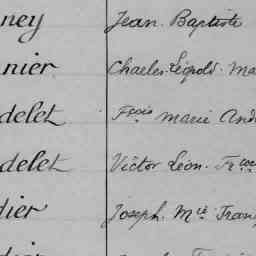 ney Jean. Baptiste
nier Charles Léopold. Ma
delet Fçois marie And
delet Victor Léon. Frçois
dier Joseph. Mie Franç